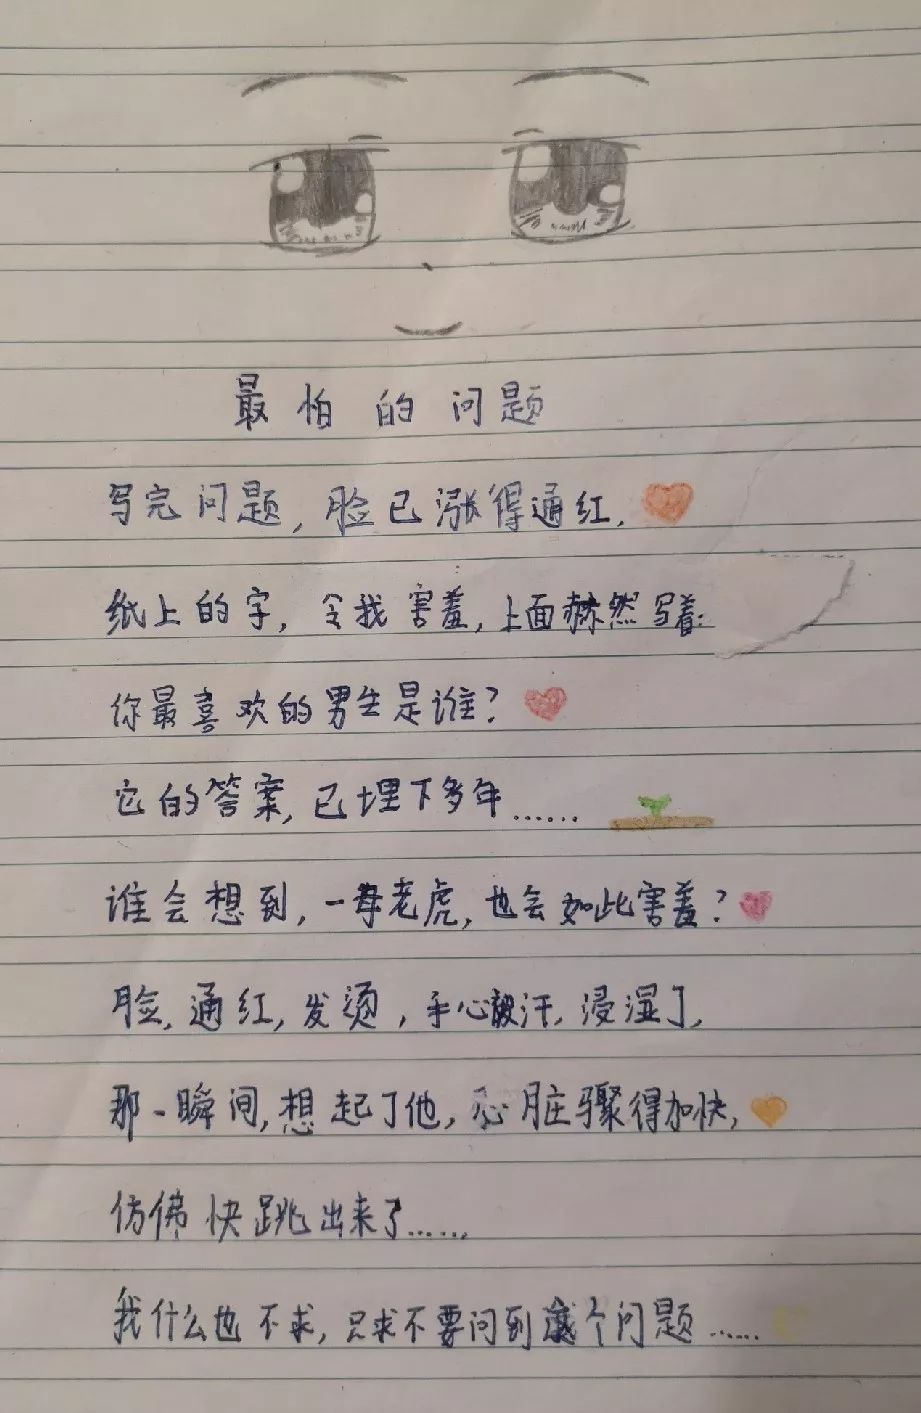 最怕的问题
写完问题，脸已涨得通红，
纸上的字，令我害羞，上面赫然写着：
你最喜欢的男生是谁？
它的答案，已埋下多年……
谁会想到，一母老虎，也会如此害羞？
脸，通红，发烫，手心被汗，浸湿了，
那一瞬间，想起了他，心脏骤得加快，
仿佛快跳出来了……
我什么也不求，只求不要问到这个问题……